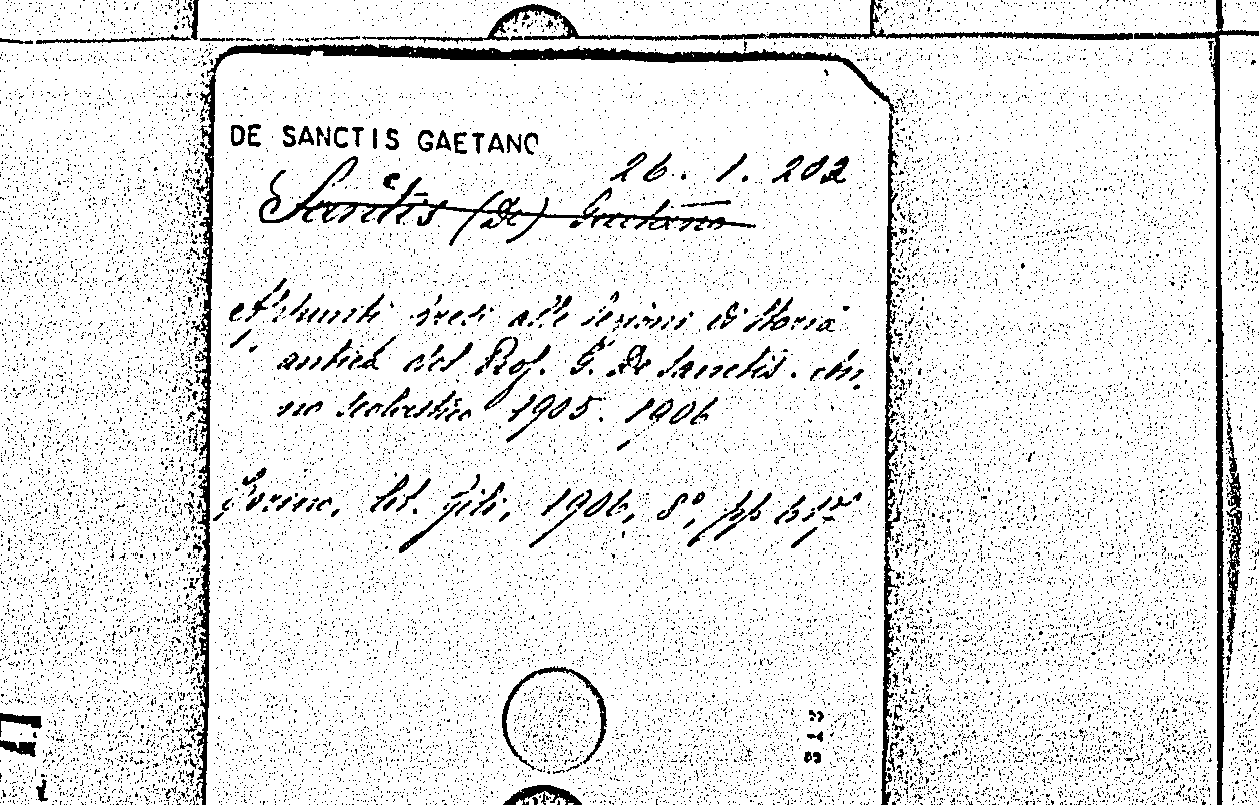 DE SANCTIS GAETANO
26. 1. 202
Sanctis (De) Gaetano
Appunti presi alle lezioni di Storia
antica del Prof. G. De Sanctis. An,
no scolastico 1905. 1906
Torino, lit. Gili, 1906, 8°, pp